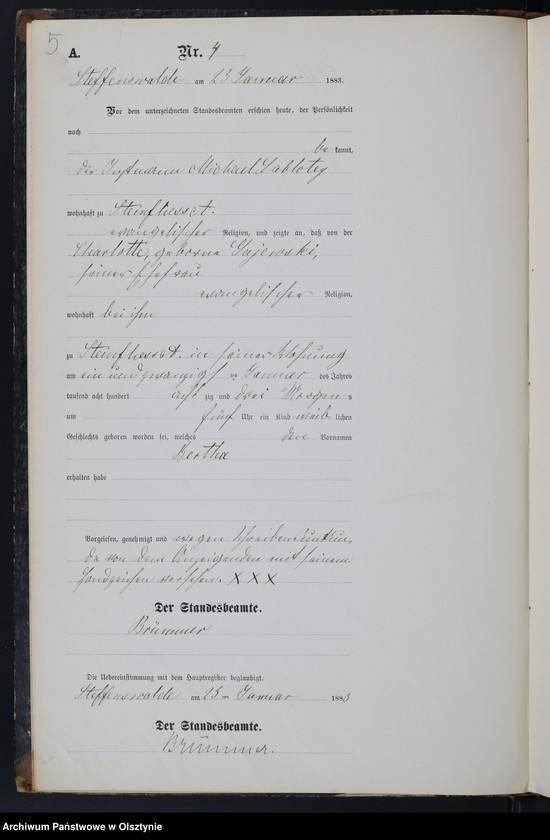 5
A.
Nr. 4
Steffenswalde am 23 Januar 1883.
Vor dem unterzeichneten Standesbeamten erschien heute, der Persönlichkeit
nach
be kannt,
der Michael
wohnhaft zu
evangelischer Religion, und zeigte an, daß von der
Charlotte, geborne Gajewski,
seiner Ehefrau
evangelischer Religion,
wohnhaft bei ihm
zu in seiner Wohnung
am ein und zwanzigst en Januar des Jahres
tausend acht hundert acht zig und drei Morgen s
um fünf Uhr ein Kind weib lichen
Geschlechts geboren worden sei, welches den Vornamen
Bertha
erhalten habe
Vorgelesen, genehmigt und wegen Schreibensunkun-
de von dem Anzeigenden mit seinem
Handzeichen versehen. X X X
Der Standesbeamte.
Brümmer
Die Uebereinstimmung mit dem Hauptregister beglaubigt.
Steffenswalde am 23 ten Januar 1883
Der Standesbeamte.
Brümmer.
Archiwum Państwowe w Olsztynie